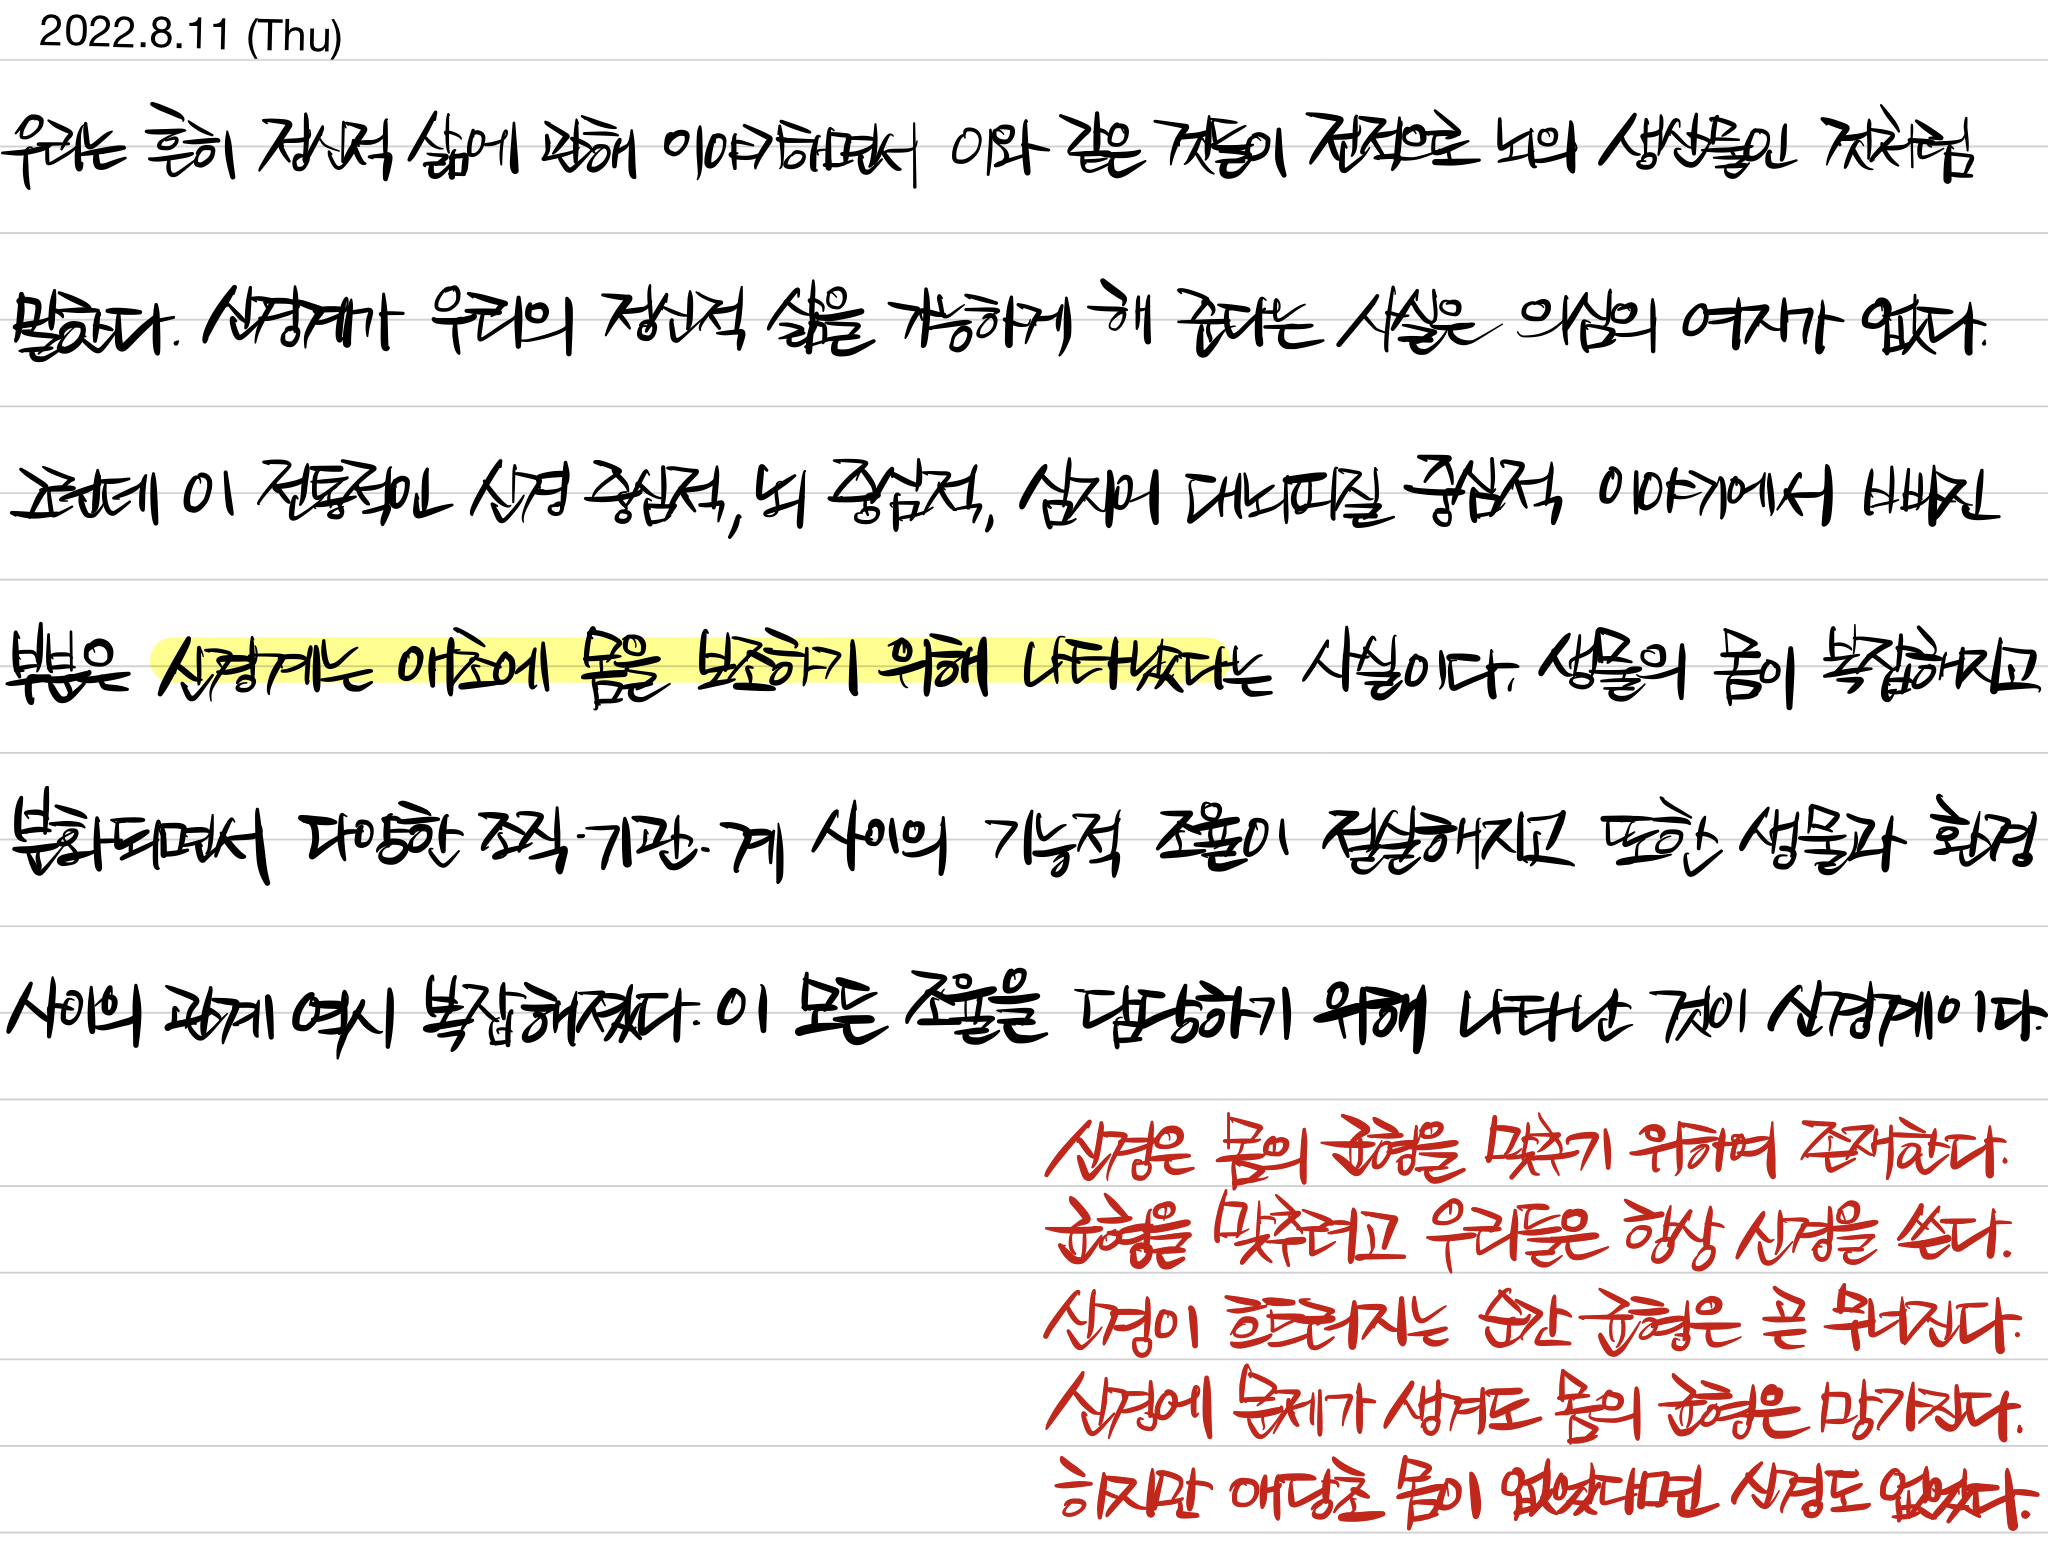 2022.8.11 (Thu)
우리는 흔히 정신적 삶에 관해 이야기하면서 이와 같은 것들이 전적으로 뇌의 생산물인 것처럼
말한다. 신경계가 우리의 정신적 삶을 가능하게 해 준다는 사실은 의심의 여지가 없다.
그런데 이 전통적인 신경 중심적, 뇌 중심적, 심지어 대뇌피질 중심적 이야기에서 빠진
부분은 신경계는 애초에 몸을 보조하기 위해 나타났다는 사실이다. 생물의 몸이 복잡해지고
분화되면서 다양한 조직·기관·계 사이의 기능적 조율이 절실해지고 또한 생물과 환경
사이의 관계 역시 복잡해졌다. 이 모든 조율을 담당하기 위해 나타난 것이 신경계이다.
신경은 몸의 균형을 맞추기 위하여 존재한다.
균형을 맞추려고 우리들은 항상 신경을 쓴다.
신경이 흐트러지는 순간 균형은 곧 무너진다.
신경에 문제가 생겨도 몸의 균형은 망가진다.
하지만 애당초 몸이 없었다면 신경도 없었다.